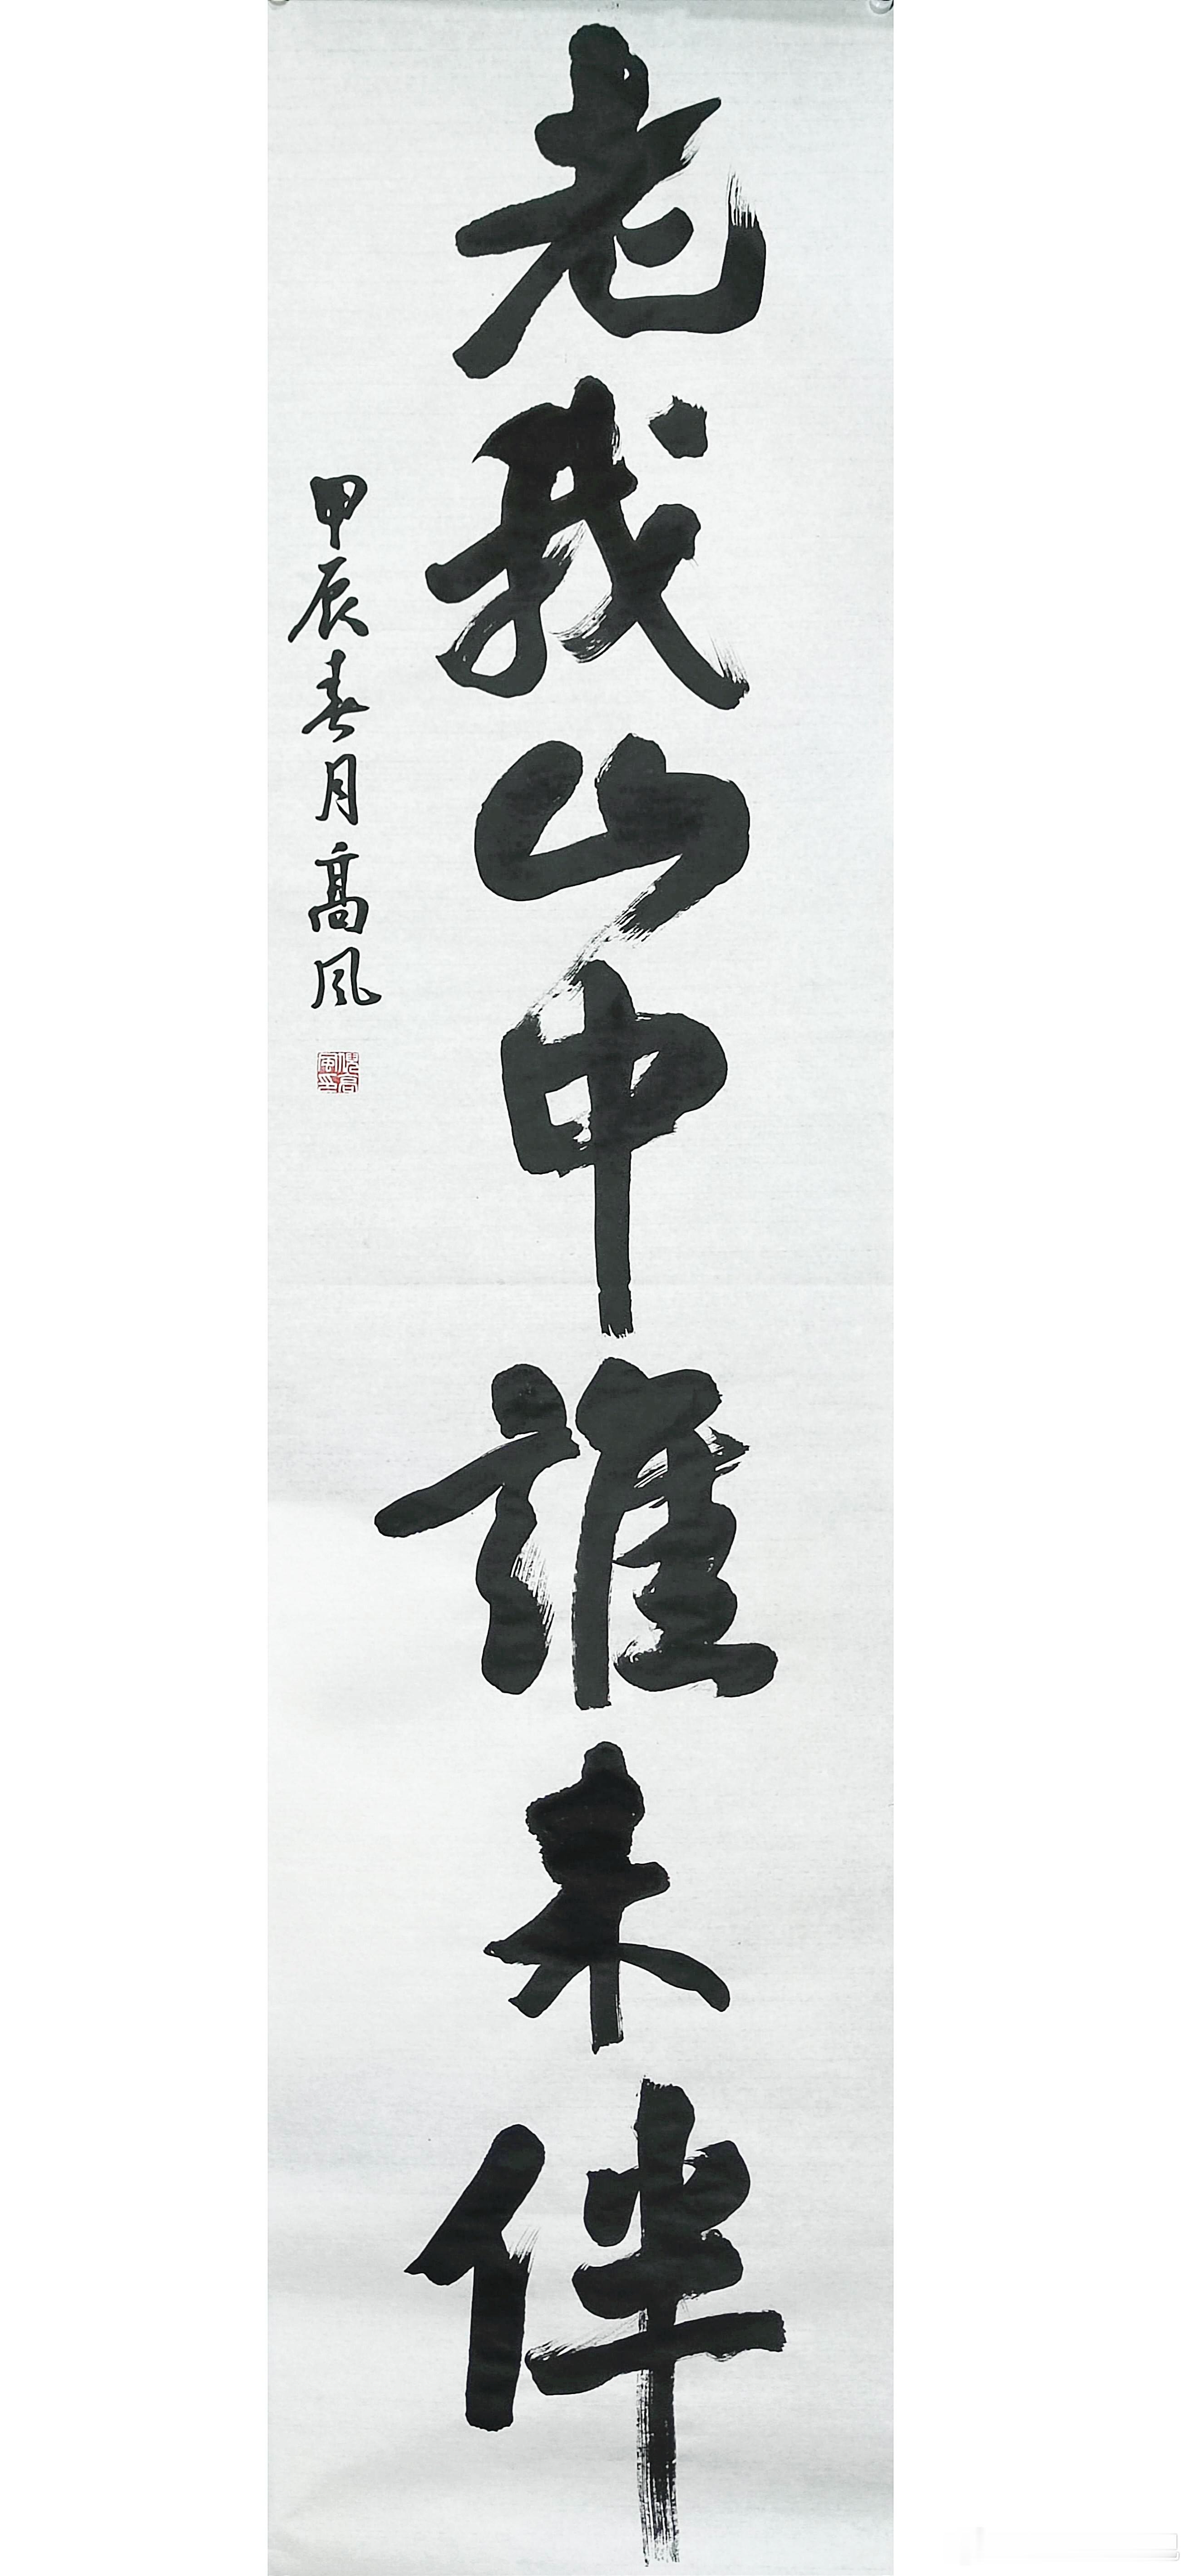 老我山中誰来伴
甲辰春月高风